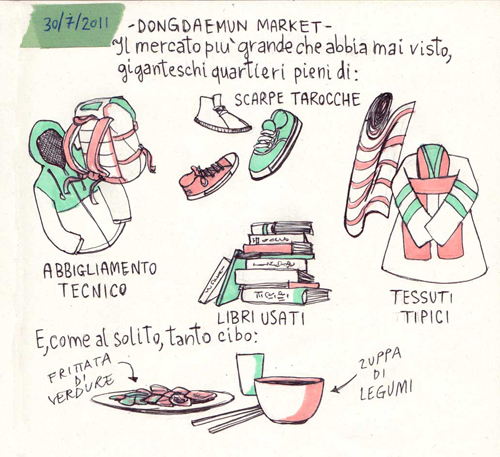 30/7/2011
-DONGDAEMUN MARKET-
Il mercato piu' grande che abbia mai visto,
giganteschi quartieri pieni di:
SCARPE TAROCCHE
ABBIGLIAMENTO
TECNICO
LIBRI USATI
TESSUTI
TIPICI
E, come al solito, tanto cibo:
FRITTATA
DI
VERDURE
ZUPPA
DI
LEGUMI